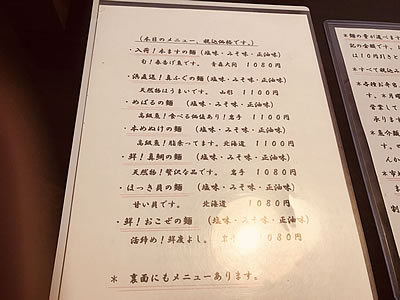 (本日のメニュー、税込価格です。)
・入荷!本ますの麺(塩味・みそ味・正油味)
も!春告げ魚です。 青森大間 1080円
・浜直送!真ふぐの麺(塩味・みそ味・正油味)
天然物はうまいです。 山形 1100円
・めばるの麺 (塩味・みそ味・正油味)
高級魚!食べる価値あり!岩手 1100円
・本めぬけの麺 (塩味・みそ味・正油味)
高級魚!脂余ってます。北海道 1100円
・鮮!真鯛の麺 (塩味・みそ味・正油味)
天然物!贅沢な品です。 岩手 1080円
・ほっき貝の麺 (塩味・みそ味・正油味)
甘い貝です。 北海道 1080円
・鮮!おこぜの麺 (塩味・みそ味・正油味)
活〆め!鮮度よし。 岩手 1080円
* 裏面にもメニューあります。
*麺の量が選べます
記の金額です。
は10円引きと
*すべて税込み
*各種お弁当
す。*月曜
営業して
承ります
*魚介類
す。